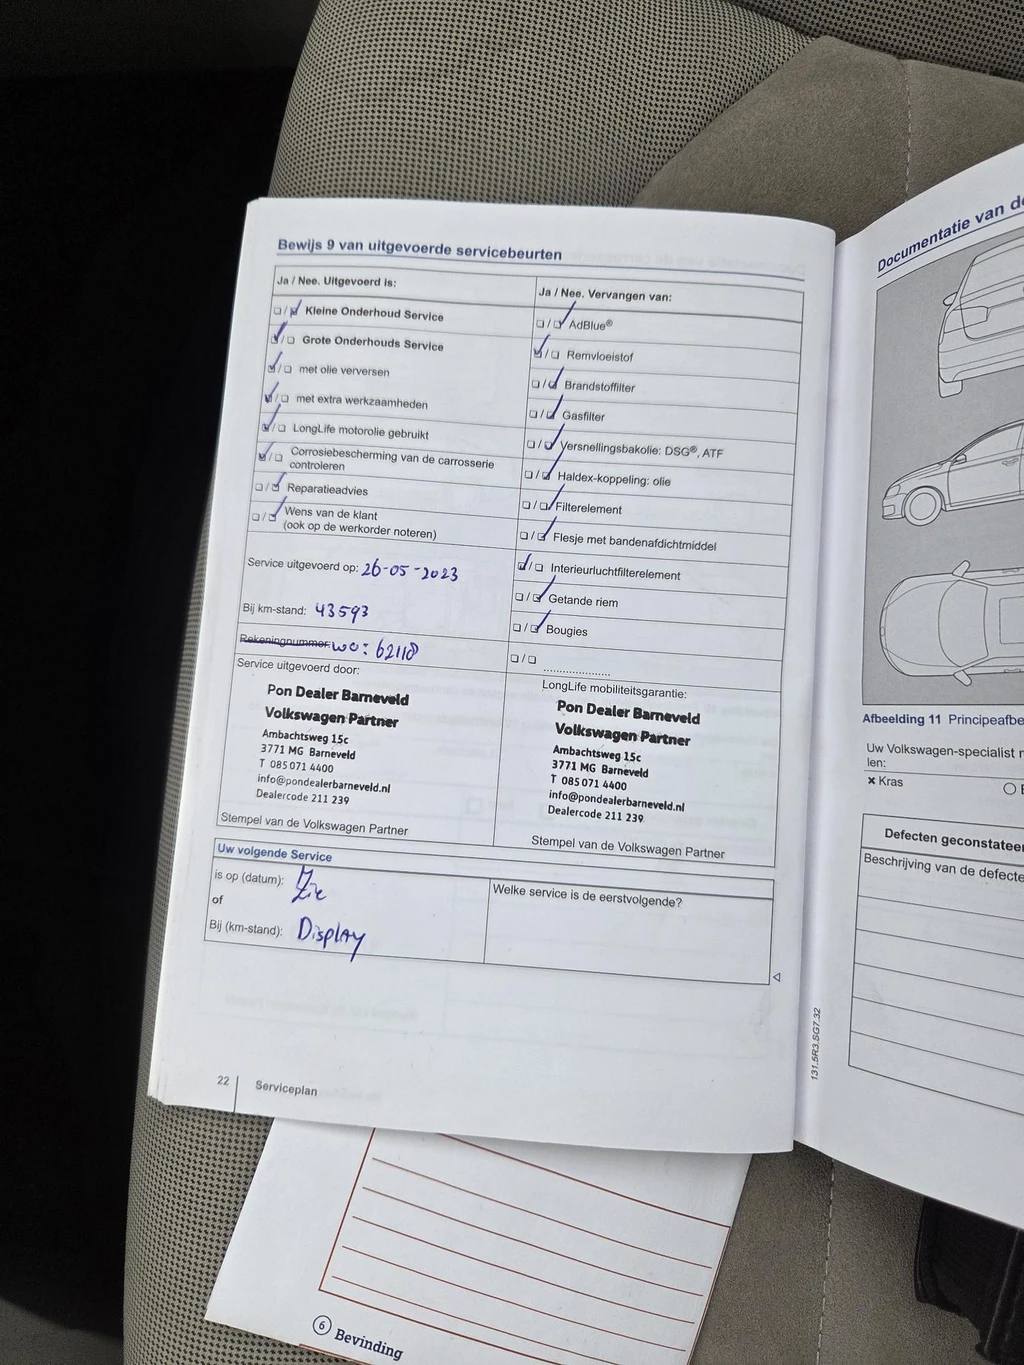 Bewijs 9 van uitgevoerde servicebeurten
Ja / Nee. Uitgevoerd is:
Kleine Onderhoud Service
Grote Onderhouds Service
met olie verversen
met extra werkzaamheden
LongLife motorolie gebruikt
Corrosiebescherming van de carrosserie
controleren
Reparatieadvies
Wens van de klant
(ook op de werkorder noteren)
Service uitgevoerd op: 26-05-2023
Bij km-stand: 43593
Rekeningnummer: wo: 62118
Service uitgevoerd door:
Pon Dealer Barneveld
Volkswagen Partner
Ambachtsweg 15c
3771 MG Barneveld
T 085 071 4400
info@pondealerbarneveld.nl
Dealercode 211 239
Stempel van de Volkswagen Partner
Ja / Nee. Vervangen van:
AdBlue®
Remvloeistof
Brandstoffilter
Gasfilter
Versnellingsbakolie: DSG®, ATF
Haldex-koppeling: olie
Filterelement
Flesje met bandenafdichtmiddel
Interieurluchtfilterelement
Getande riem
Bougies
....................
LongLife mobiliteitsgarantie:
Pon Dealer Barneveld
Volkswagen Partner
Ambachtsweg 15c
3771 MG Barneveld
T 085 071 4400
info@pondealerbarneveld.nl
Dealercode 211 239
Stempel van de Volkswagen Partner
Uw volgende Service
is op (datum): Zie
of
Bij (km-stand): Display
Welke service is de eerstvolgende?
22 Serviceplan
131.5R3.SG7.32
Documentatie van de
Afbeelding 11 Principeafbe
Uw Volkswagen-specialist
len:
× Kras
Defecten geconstatee
Beschrijving van de defecte
6 Bevinding